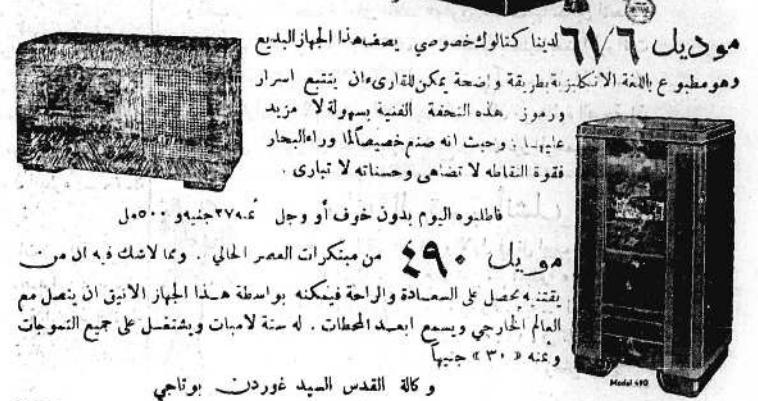 موديل ٦١٧٦ لدينا كتالوك خصوصي يصف هذا الجهاز البديع
وهو مطبوع باللغة الانكليزية بطريقة واضحة يمكن للقارىء ان يتتبع اسرار
ورموز هذه التحفة الفنية بسهولة لا مزيد
عليها وحيث انه صنع خصيصاً لما وراء البحار
فقوة التقاطه لا تضاهى وحسناته لا تبارى .
فاطلبوه اليوم بدون خوف أو وجل ثمنه ٢٧ جنيه و ٥٠٠ مل
موبل ٤٩٠ من مبتكرات العصر الحالي . ومما لاشك فيه ان من
يقتنيه يحصل على السعادة والراحة فيمكنه بواسطة هذا الجهاز الانيق ان يتصل مع
العالم الخارجي ويسمع ابعد المحطات . له ستة لامبات ويشتغل على جميع التموجات
وثمنه « ٣٠ » جنيهاً
Model 490
وكالة القدس السيد غوردن بوتاجي